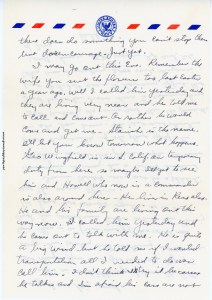 there does do something you can't stop them
but don't encourage just yet.
I may go out this Eve. Remember the
wife you sent the flowers to last Easter
a year ago. Well I called him yesterday and
they are living very near and he told me
to call and concert on rather he would
come and get me. is the name.
I'll let you know tomorrow what happens.
Geo Wingfield is in S. Calif on temporary
duty from here so maybe I'll get to see
him and Howell who now is a commander
is also around here. He lives in
He and his family are living out this
way now. I called him yesterday and
he came out to talk with me. He is quite
a big word but he told me if I wanted
transportation all I needed to do was
call him. I don't think I'll try it because
he talks and I'm afraid his ears are not